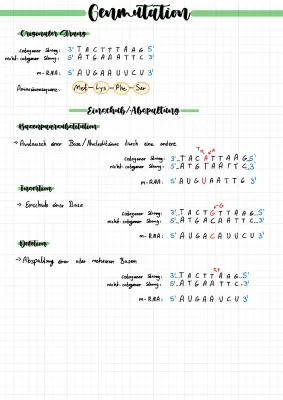 Genmutation
Originaler Strang
codogener Strang: 3' T A C T T T A A G 5'
nicht-codogener Strang: 5' A T G A A A T T C 3'
m-RNA: 5' A U G A A U U C U 3'
Aminosäuresequenz: Met - Lys - Phe - Ser
Einschub/Abspaltung
Basenpaarsubstitution
→ Austausch einer Base/Nucleotidsasse durch eine andere
codogener Strang: 3'...T A C A T T A A G...5'
nicht-codogener Strang: 5'...A T G T A A T T C...3'
m-RNA: 5' A U G U A A T T G 3'
Insertion
→ Einschub einer Base
codogener Strang: 3'...T A C T G T T A A G...5'
nicht-codogener Strang: 5'...A T G A C A A T T C...3'
m-RNA: 5' A U G A C A U U C U 3'
Deletion
→ Abspaltung einer oder mehreren Basen
codogener Strang: 3'...T A C T T A A G...5'
nicht-codogener Strang: 5'...A T G A A T T C...3'
m-RNA: 5' A U G A A U C U 3'